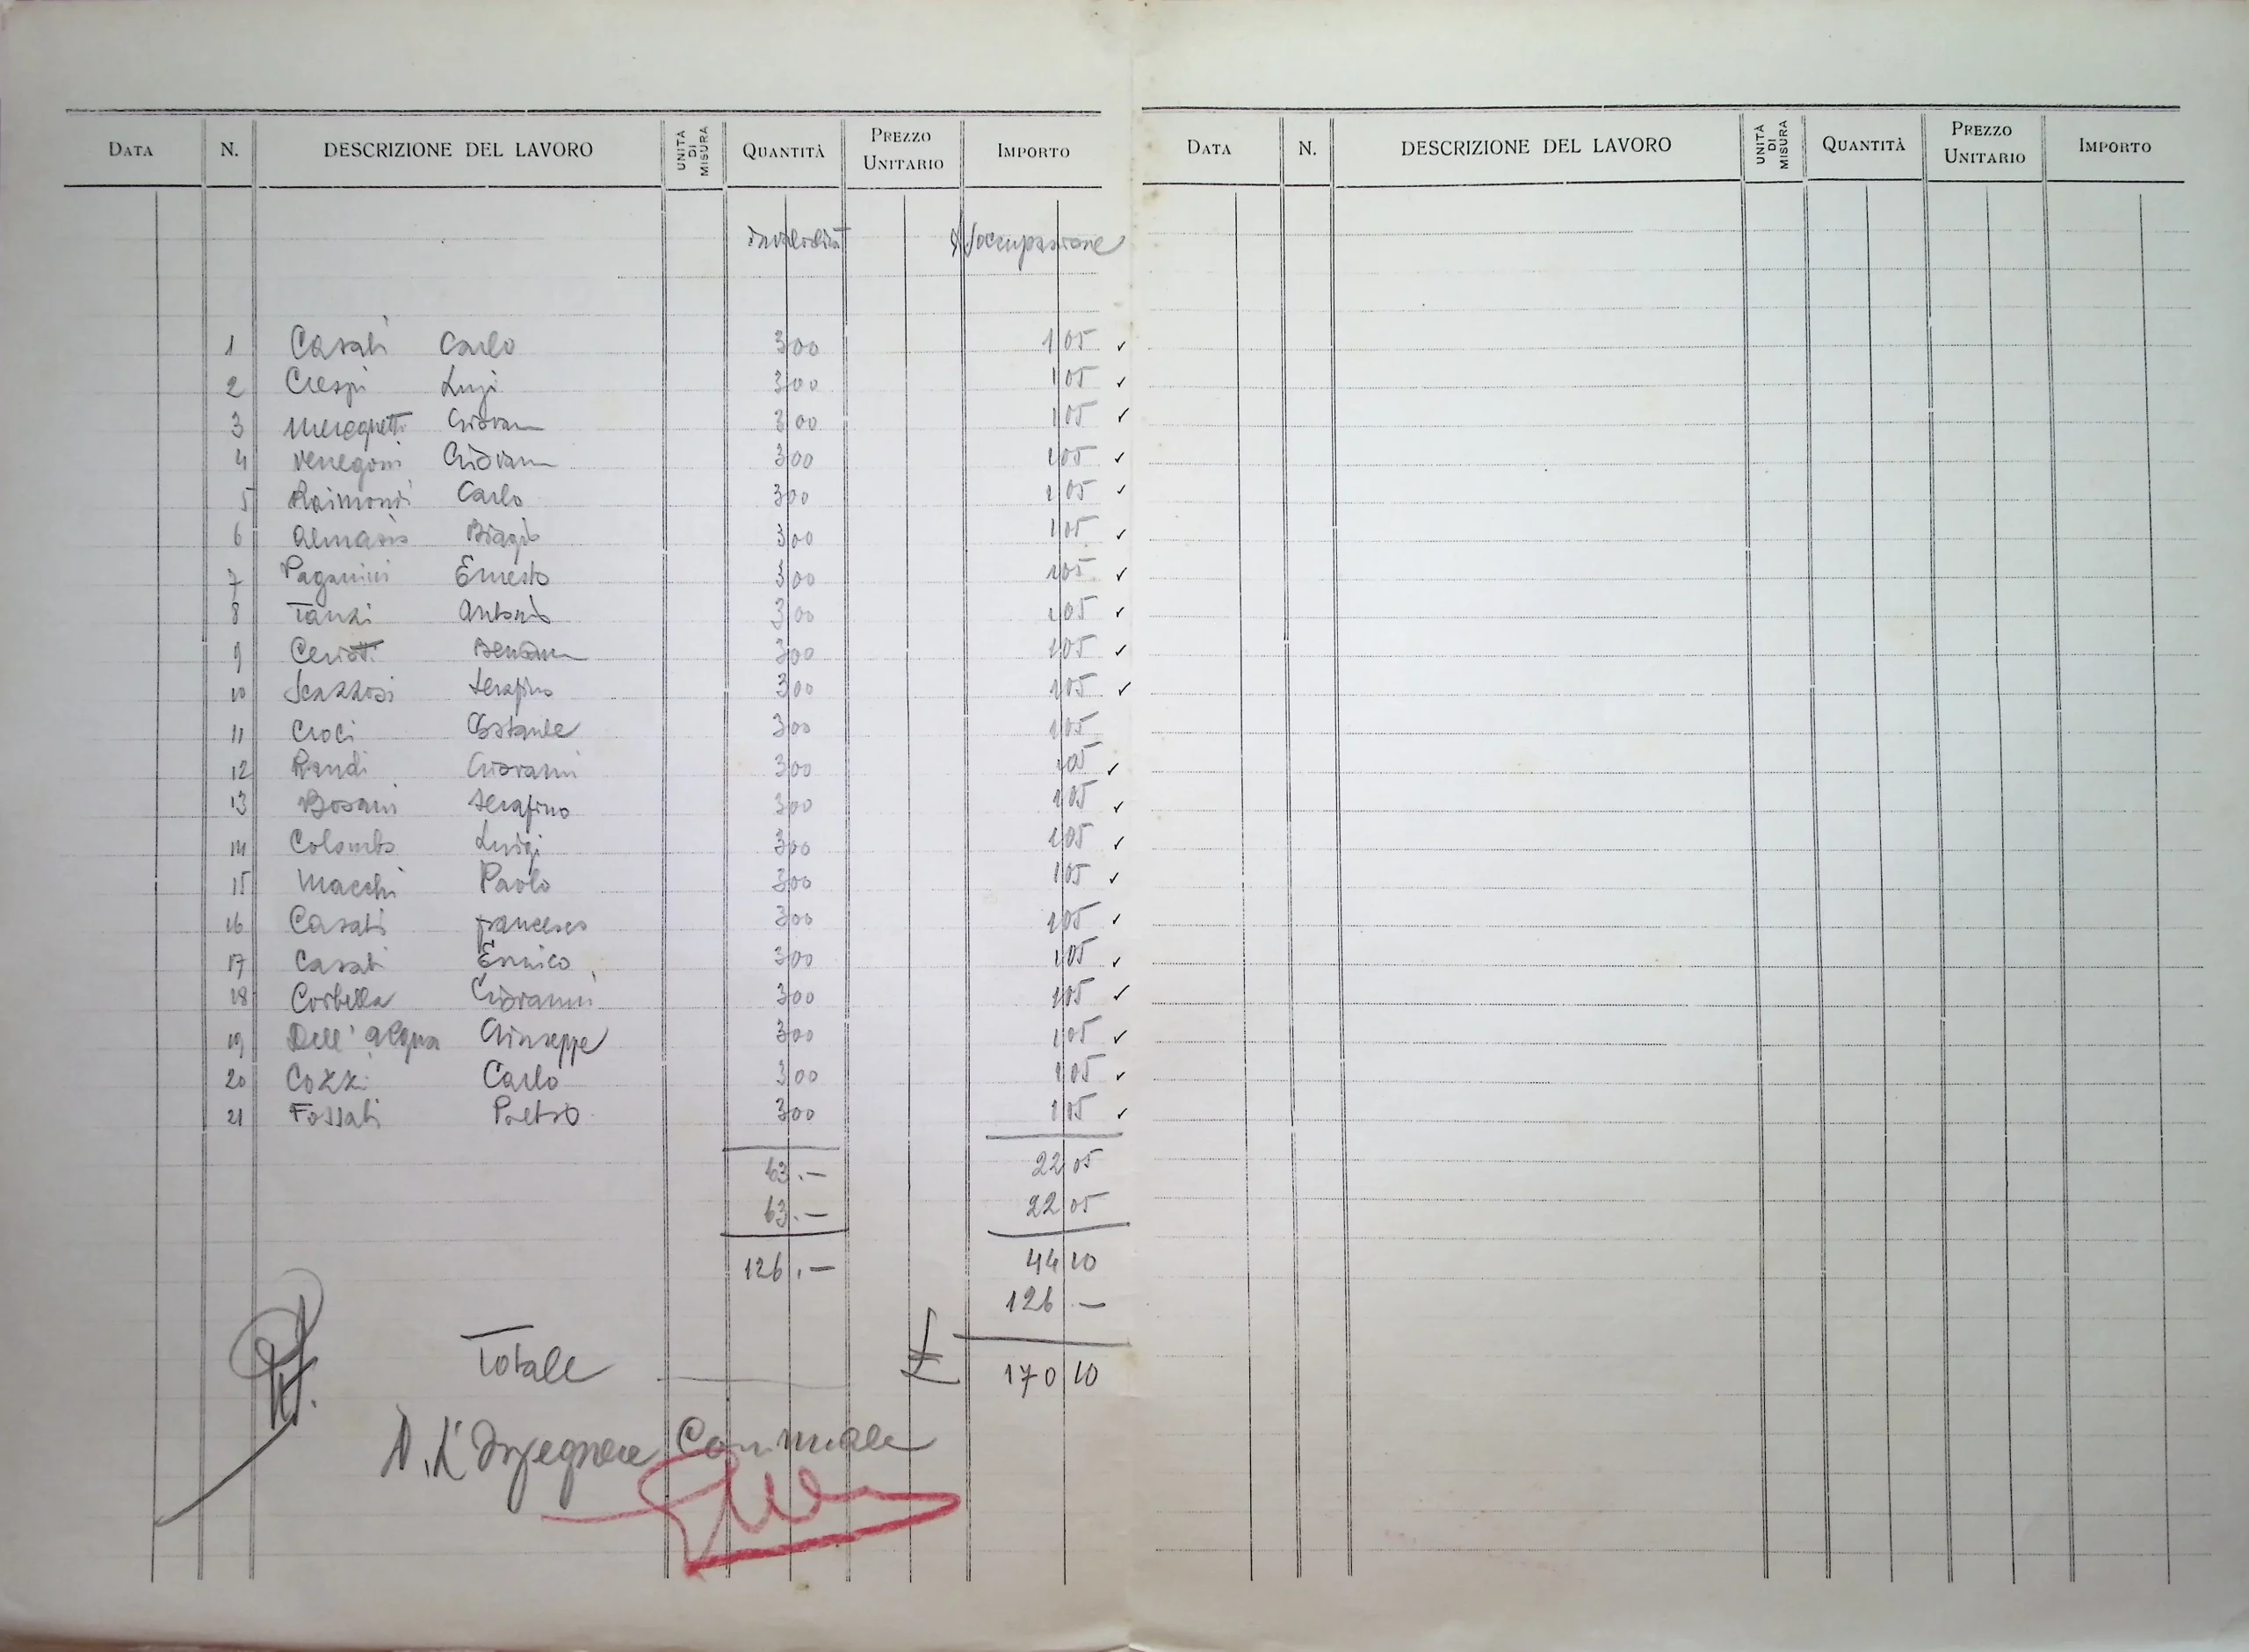 DATA N. DESCRIZIONE DEL LAVORO UNITÀ DI MISURA QUANTITÀ PREZZO UNITARIO IMPORTO
invalidità Disoccupazione
1 Casati Carlo 3 00 1 05 ✓
2 Crespi Luigi 3 00 1 05 ✓
3 Meregnetti Giovanni 3 00 1 05 ✓
4 Venegoni Giovanni 3 00 1 05 ✓
5 Raimondi Carlo 3 00 1 05 ✓
6 Almasio Biagio 3 00 1 05 ✓
7 Paganini Ernesto 3 00 1 05 ✓
8 Tanzi Antonio 3 00 1 05 ✓
9 Ceriotti 3 00 1 05 ✓
10 Scazzosi Serafino 3 00 1 05 ✓
11 Croci Costante 3 00 1 05
12 Giovanni 3 00 1 05 ✓
13 Bosani Serafino 3 00 1 05 ✓
14 Colombo Luigi 3 00 1 05 ✓
15 Macchi Paolo 3 00 1 05 ✓
16 Casati Francesco 3 00 1 05 ✓
17 Casati Enrico 3 00 1 05 ✓
18 Corbella Giovanni 3 00 1 05 ✓
19 Dell'Acqua Giuseppe 3 00 1 05 ✓
20 Cozzi Carlo 3 00 1 05 ✓
21 Fossati Pietro 3 00 1 05 ✓
63.— 22 05
63.— 22 05
126.— 44 10
126.—
Totale £ 170 10
L'Ingegnere Comunale
DATA N. DESCRIZIONE DEL LAVORO UNITÀ DI MISURA QUANTITÀ PREZZO UNITARIO IMPORTO